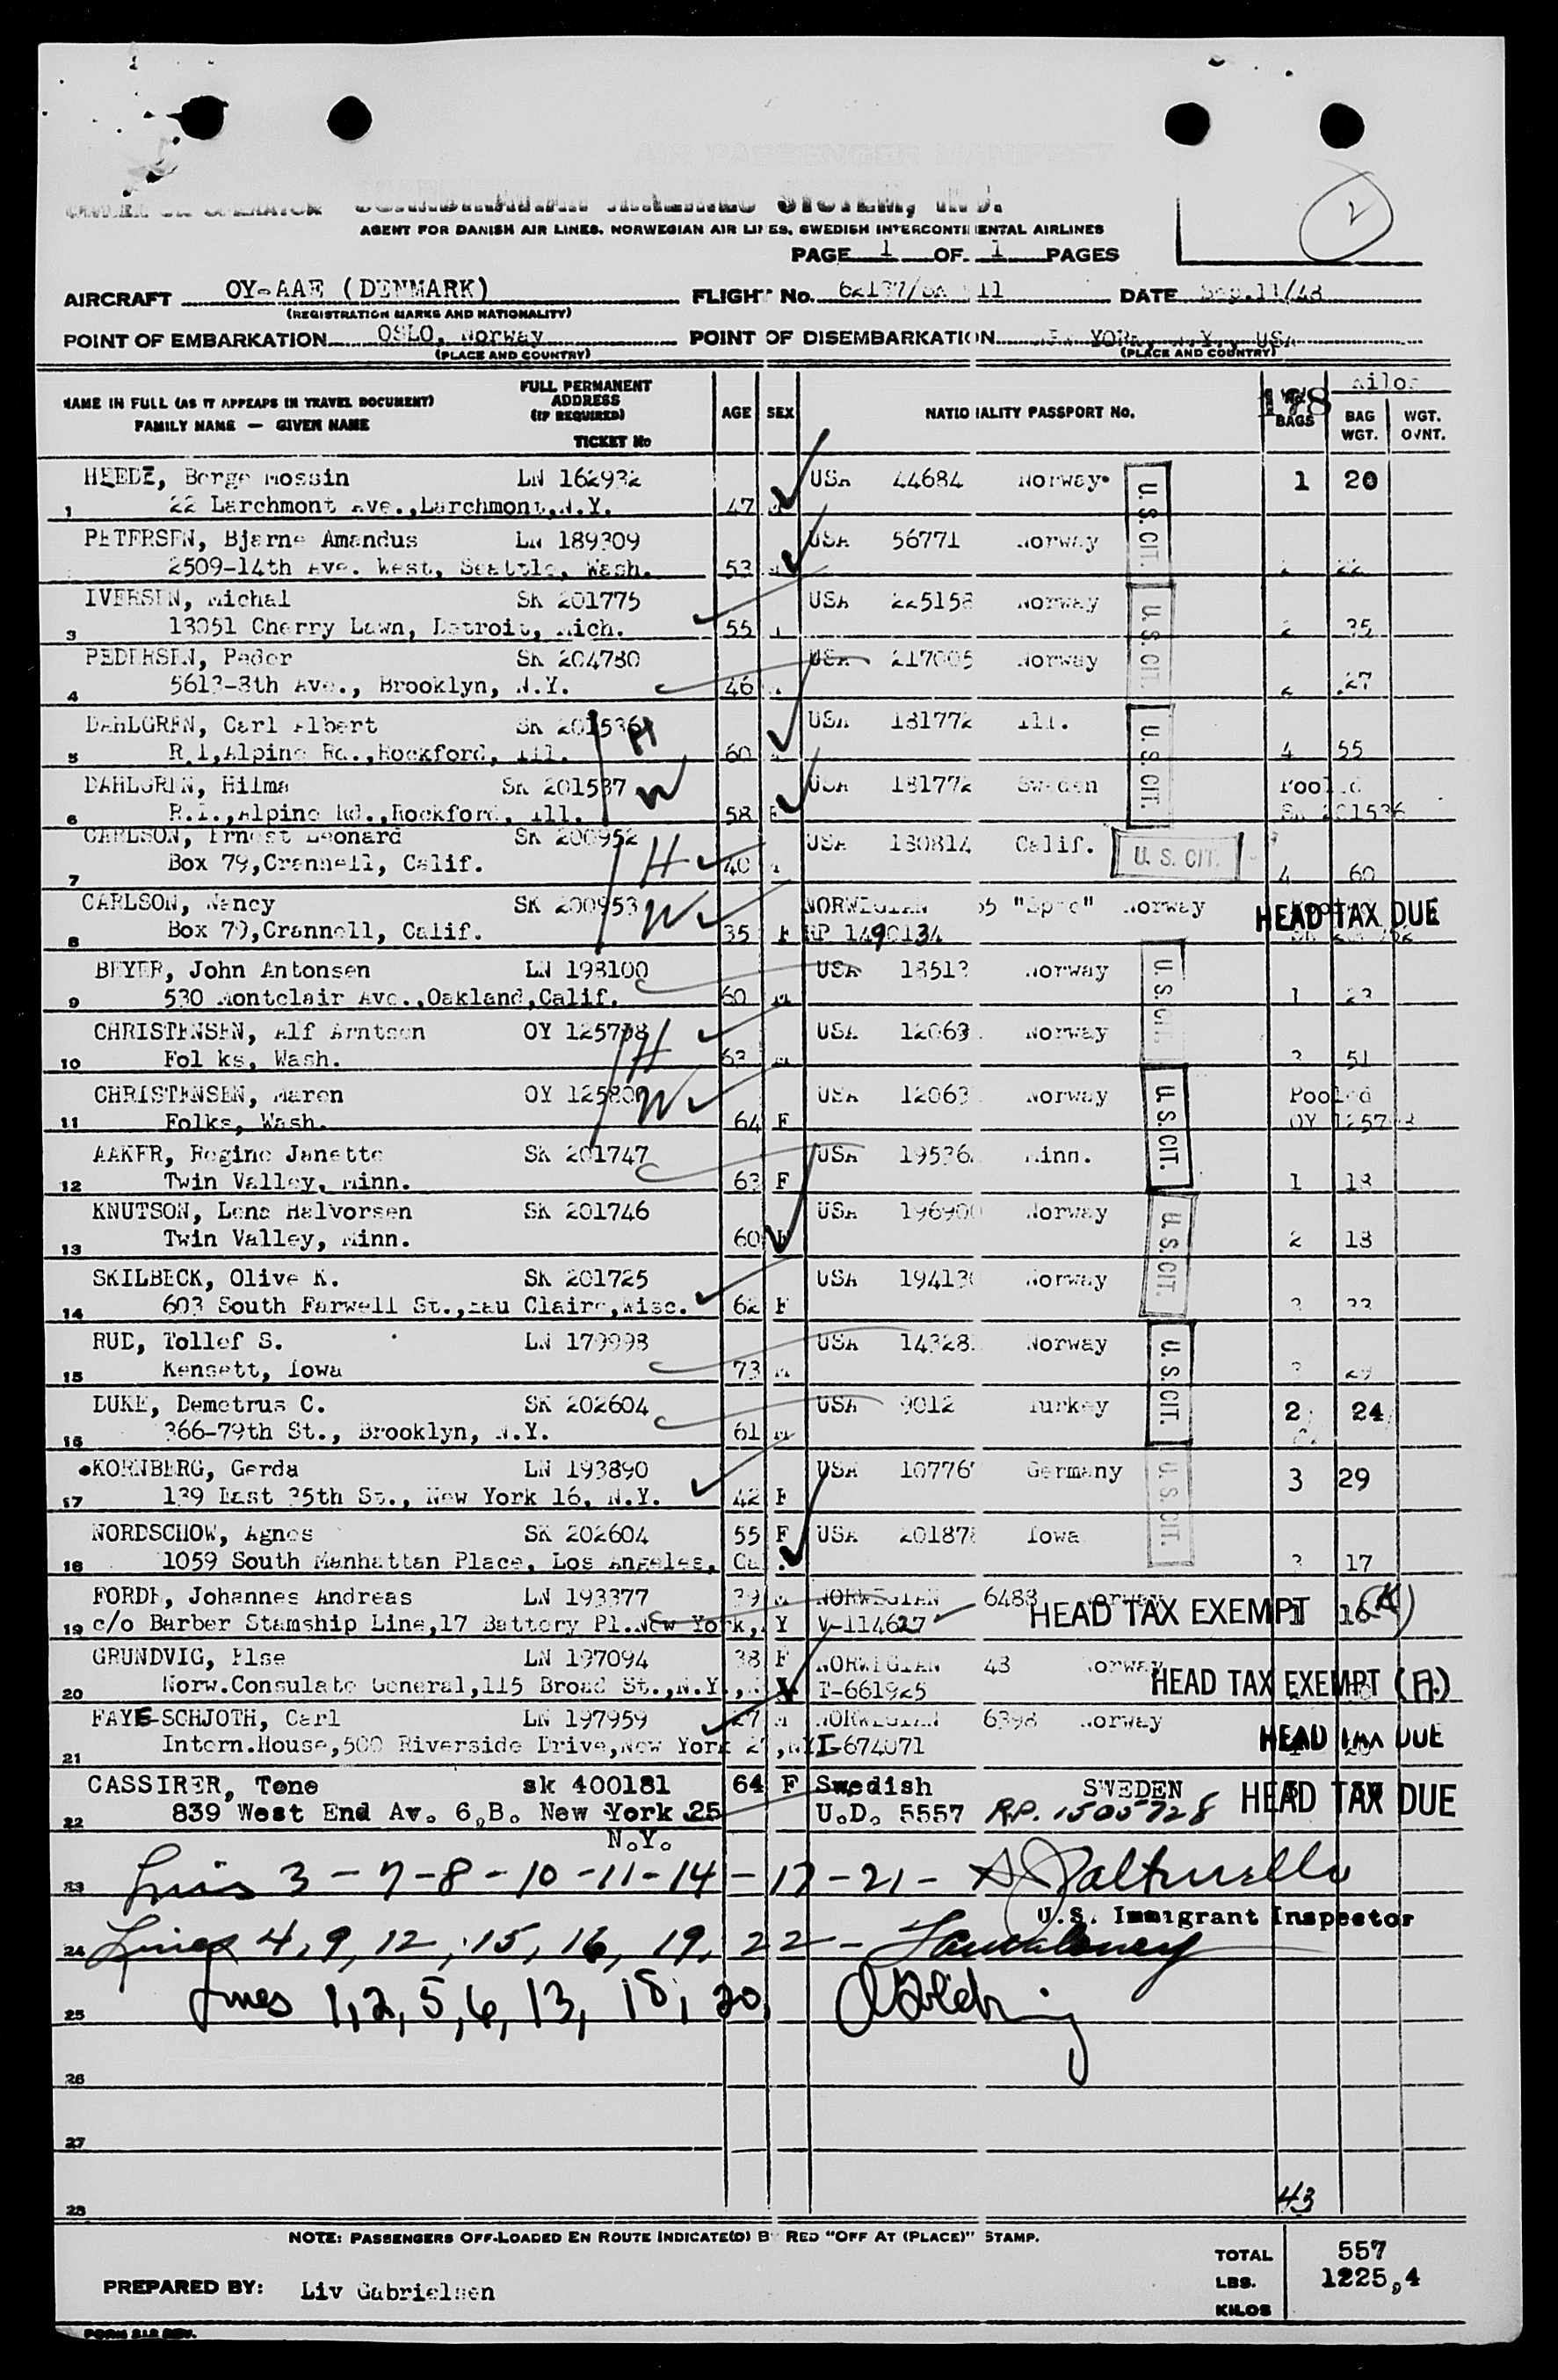 OWNER OR OPERATOR SCANDINAVIAN AIRLINES SYSTEM, INC.
AGENT FOR DANISH AIR LINES, NORWEGIAN AIR LINES, SWEDISH INTERCONTINENTAL AIRLINES
PAGE 1 OF 1 PAGES
2
AIRCRAFT OY-AAE (DENMARK) FLIGHT No. DATE Sep.11/48
(REGISTRATION MARKS AND NATIONALITY)
POINT OF EMBARKATION OSLO, Norway POINT OF DISEMBARKATION NEW YORK, N.Y., USA
(PLACE AND COUNTRY) (PLACE AND COUNTRY)
NAME IN FULL (AS IT APPEARS IN TRAVEL DOCUMENT)
FAMILY NAME — GIVEN NAME
FULL PERMANENT ADDRESS (IF REQUIRED)
TICKET No
AGE SEX NATIONALITY PASSPORT No. 178 BAGS Kilos BAG WGT. WGT. OVNT.
HEEDE, Borge Mossin LN 162932 USA 44684 Norway 1 20
1 22 Larchmont Ave.,Larchmont,N.Y. 47 M
U.S. CIT.
PETERSEN, Bjarne Amandus LN 189309 USA 56771 Norway
2509-14th Ave. West, Seattle, Wash. 53 22
IVERSEN, Michal SK 201775 USA 225158 Norway
3 13051 Cherry Lawn, Detroit, Mich. 55 2 35
U.S. CIT.
PEDERSEN, Peder SK 204780 USA 217005 Norway
4 5613-8th Ave., Brooklyn, N.Y. 46 2 27
DAHLGREN, Carl Albert SK 201536 H USA 181772 Ill.
5 R.1,Alpine Rd.,Rockford, Ill. 60 4 55
U.S. CIT.
DAHLGREN, Hilma SK 201537 W USA 181772 Sweden Pooled
6 R.1.,Alpine Rd.,Rockford, Ill. 58 F SK 201536
CARLSON, Ernest Leonard SK 200952 H USA 180814 Calif. U. S. CIT.
7 Box 79,Crannell, Calif. 40 4 60
CARLSON, Nancy SK 200953 W NORWEGIAN 55 Norway HEAD TAX DUE
8 Box 79,Crannell, Calif. 35 F RP 1490134
BEYER, John Antonsen LN 198100 USA 18513 Norway
9 530 Montclair Ave.,Oakland,Calif. 60 M 1 23
U.S. CIT.
CHRISTENSEN, Alf Arntsen OY 125798 H USA 12063 Norway
10 Fol ks, Wash. 63 M 3 51
CHRISTENSEN, Maren OY 125800 W USA 12063 Norway Pooled
11 Folks, Wash. 64 F OY
U.S. CIT.
AAKER, Regine Janette SK 201747 USA 19536 Minn.
12 Twin Valley, Minn. 63 F 1 18
KNUTSON, Lena Halvorsen SK 201746 USA 196900 Norway
13 Twin Valley, Minn. 60 F 2 18
U.S. CIT.
SKILBECK, Olive K. SK 201725 USA 19413 Norway
14 603 South Farwell St.,Eau Claire,Wisc. 62 F
RUD, Tollef S. LN 179998 USA 14328 Norway
15 Kensett, Iowa 73 M
U.S. CIT.
LUKE, Demetrus C. SK 202604 USA 9012 Turkey 2 24
16 366-79th St., Brooklyn, N.Y. 61 M
KORNBERG, Gerda LN 193890 USA 10776 Germany 3 29
17 139 East 35th St., New York 16, N.Y. 42 F
U.S. CIT.
NORDSCHOW, Agnes SK 202604 55 F USA 20187 Iowa
18 1059 South Manhattan Place, Los Angeles, Cal. 3 17
FORDE, Johannes Andreas LN 193377 39 M NORWEGIAN 6488 Norway HEAD TAX EXEMPT
19 c/o Barber Stamship Line,17 Battery Pl.New York, N Y V-114627 1 16
GRUNDVIG, Else LN 197094 38 F NORWEGIAN 43 Norway HEAD TAX EXEMPT (A)
20 Norw.Consulate General,115 Broad St.,N.Y., I-661925
FAYE-SCHJOTH, Carl LN 197959 27 M NORWEGIAN 6398 Norway HEAD TAX DUE
21 Intern.House,500 Riverside Drive,New York 27,NY I-674071
CASSIRER, Tone sk 400181 64 F Swedish SWEDEN HEAD TAX DUE
22 839 West End Av. 6.B. New York 25 U.D. 5557 RP. 1505728
N.Y.
23 Lines 3-7-8-10-11-14-17-21-
U.S. Immigrant Inspector
24 Lines 4, 9, 12, 15, 16, 19, 22 -
25 Lines 1, 2, 5, 6, 13, 18, 20
26
27
28 43
NOTE: PASSENGERS OFF-LOADED EN ROUTE INDICATE(D) BY RED "OFF AT (PLACE)" STAMP.
TOTAL 557
PREPARED BY: Liv Gabrielsen LBS. 1225,4
KILOS
FORM 212 REV.